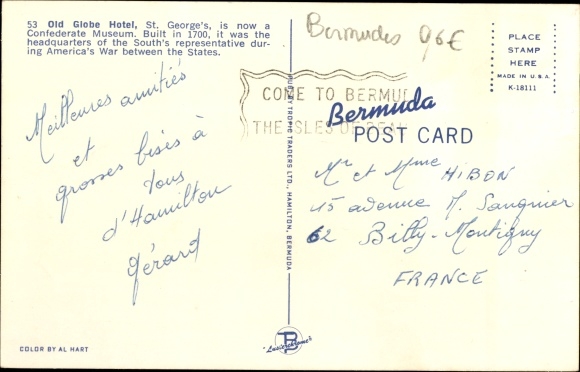 53 Old Globe Hotel, St. George's, is now a
Confederate Museum. Built in 1700, it was the
headquarters of the South's representative dur-
ing America's War between the States.
Bermudes 96€
PLACE
STAMP
HERE
MADE IN U.S.A.
K-18111
COME TO BERMUD
THE ISLES OF
Bermuda
POST CARD
Meilleures amitiés
et
grosses bises à
tous
d'Hamilton
Gérard
RUGBY TROPIC TRADERS LTD., HAMILTON, BERMUDA
Mr et Mme HIBON
15 avenue M. Sangnier
62 Billy-Montigny
FRANCE
COLOR BY AL HART
"Lusterchrome"